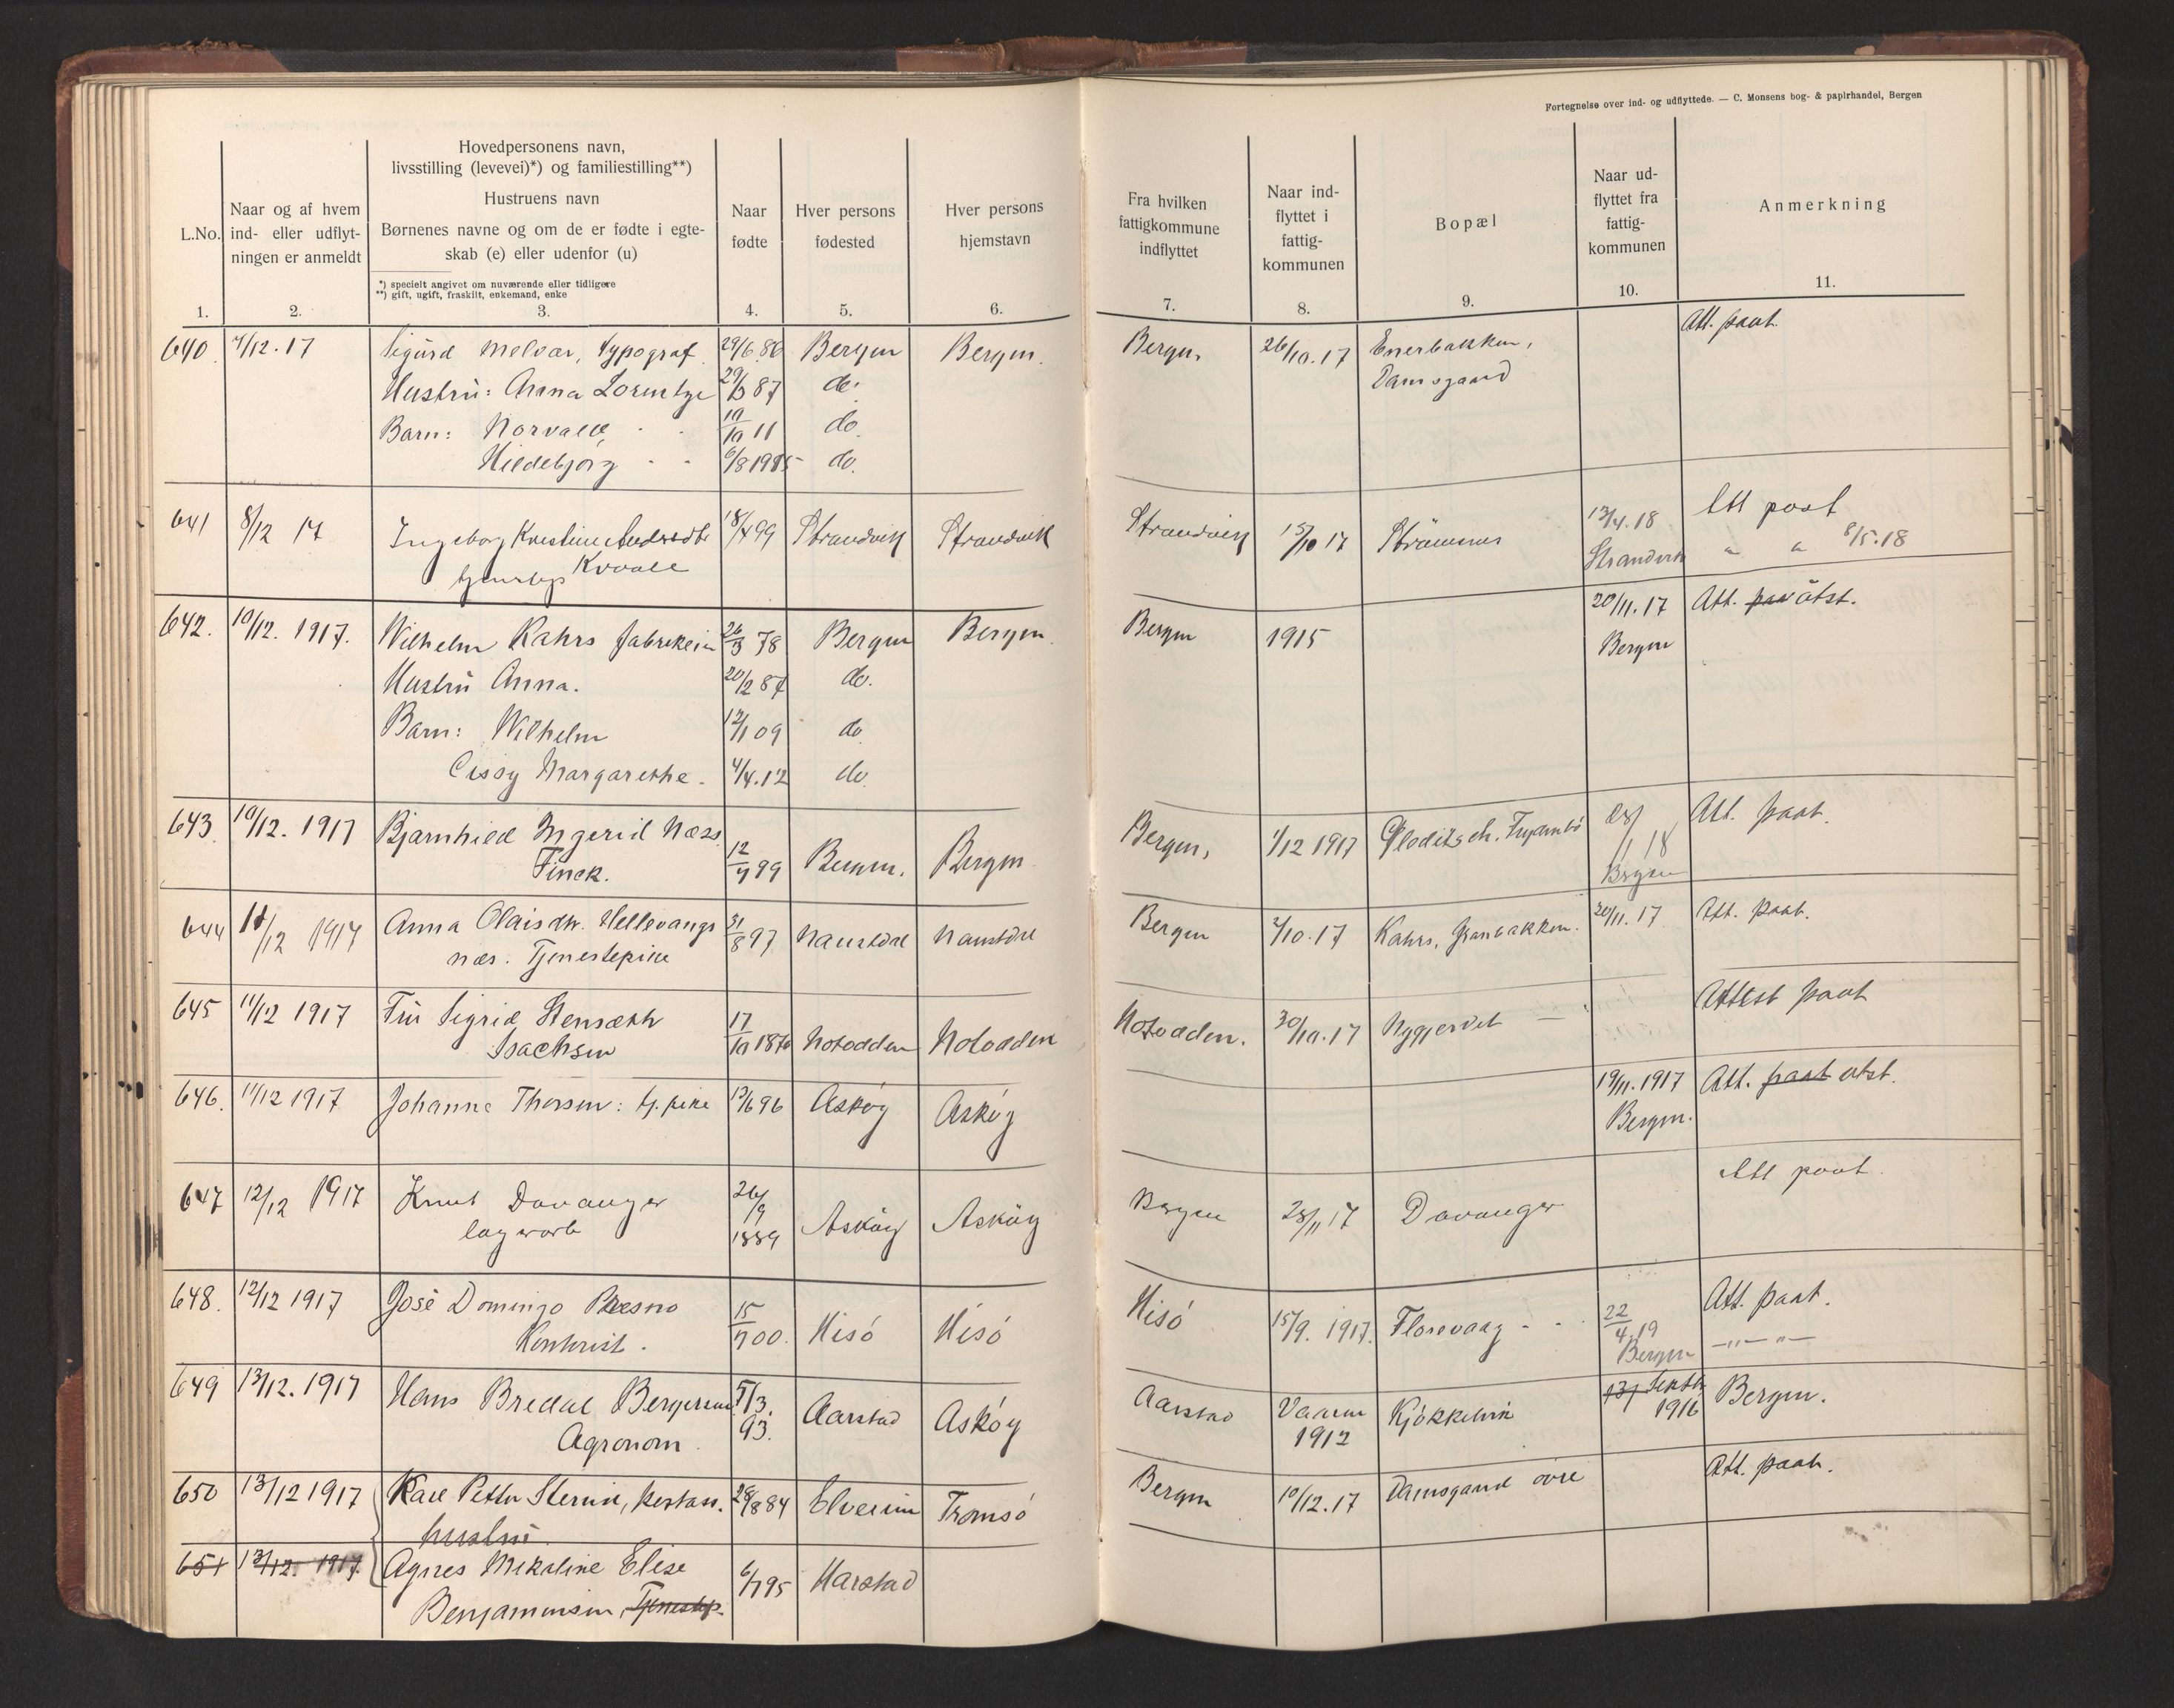 Fortegnelse over ind- og udflyttede. — C. Monsens bog- & papirhandel, Bergen
L.No.
1.
Naar og af hvem
ind- eller udflyt-
ningen er anmeldt
2.
Hovedpersonens navn,
livsstilling (levevei)*) og familiestilling**)
Hustruens navn
Børnenes navne og om de er fødte i egte-
skab (e) eller udenfor (u)
*) specielt angivet om nuværende eller tidligere
**) gift, ugift, fraskilt, enkemand, enke
3.
Naar
fødte
4.
Hver persons
fødested
5.
Hver persons
hjemstavn
6.
Fra hvilken
fattigkommune
indflyttet
7.
Naar ind-
flyttet i
fattig-
kommunen
8.
Bopæl
9.
Naar ud-
flyttet fra
fattig-
kommunen
10.
Anmerkning
11.
640 Sigurd Melvær, Typograf 29/6 86 Bergen Bergen. Bergen, 26/10.17 Att. paat.
Damsgaard
Hustru: Anna Lorentze 87 do.
Barn: Norvald 10/10 11 do.
Hildebjørg do.
641 8/12 17 Ingeborg Kristine 99 Strandvik Strandvik Strandvik 17 13/4.18 Att paat
Kvaale Strandvik " " 8/5.18
642. 10/12. 1917. Wilhelm Kahrs 26/3 78 Bergen Bergen. Bergen 1915 20/11.17 Att. paa utst.
Bergen
Hustru Anna. do.
Barn: Wilhelm 12/1 09 do
Cissy Margarethe. 4/4.12 do
643. 10/12. 1917 Bjarnhild Ingerid Næss Bergen, 1/12 1917 Att. paat.
Finck. 99 Bergen. Bergen 18
Bergen
644 1917 Anna Olaisdtr. Hellevangs 31/8 97 Naustdal Naustdal Bergen 2/10.17 Kahrs, 20/11.17 Att. paat.
næs. Tjenestepike
645 11/12 1917 Fru Sigrid Stensæth Notodden. 30/10.17 Attest paat
Isachsen 17/10 Notodden Notodden
646. 11/12 1917 Johanne Thorsen: tj. pike 96 Askøy Askøy 19/11.1917 Att. paat utst.
Bergen.
647 12/12 1917 Knut Davanger 26/9 Askøy Askøy Bergen 17 Davanger Att paat.
1889
648. 12/12 1917 José Domingo 15 Hisö Hisö Hisö 15/9. 1917. Florevaag 22/4.19 Att. paat.
Kontorist. 00. Bergen
649 13/12. 1917 Hans Bredal 5/3. Aarstad Askøy Aarstad Vaaren Kjøkkelvik Bergen.
Agronom 93. 1912 1916
650 13/12 1917 Petter 28/8 84 Elverum Tromsö Bergen 10/12.17 Damsgaard øvre Att. paat.
hustru
651 13/12. 1917. Agnes Mikaline Elise 95 Harstad
Benjaminsen, Tjenestep.